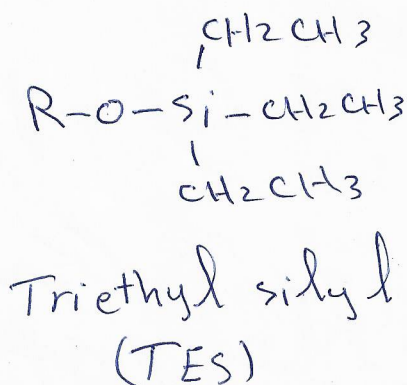 CH2CH3
R-O-Si-CH2CH3
CH2CH3
Triethyl silyl
(TES)